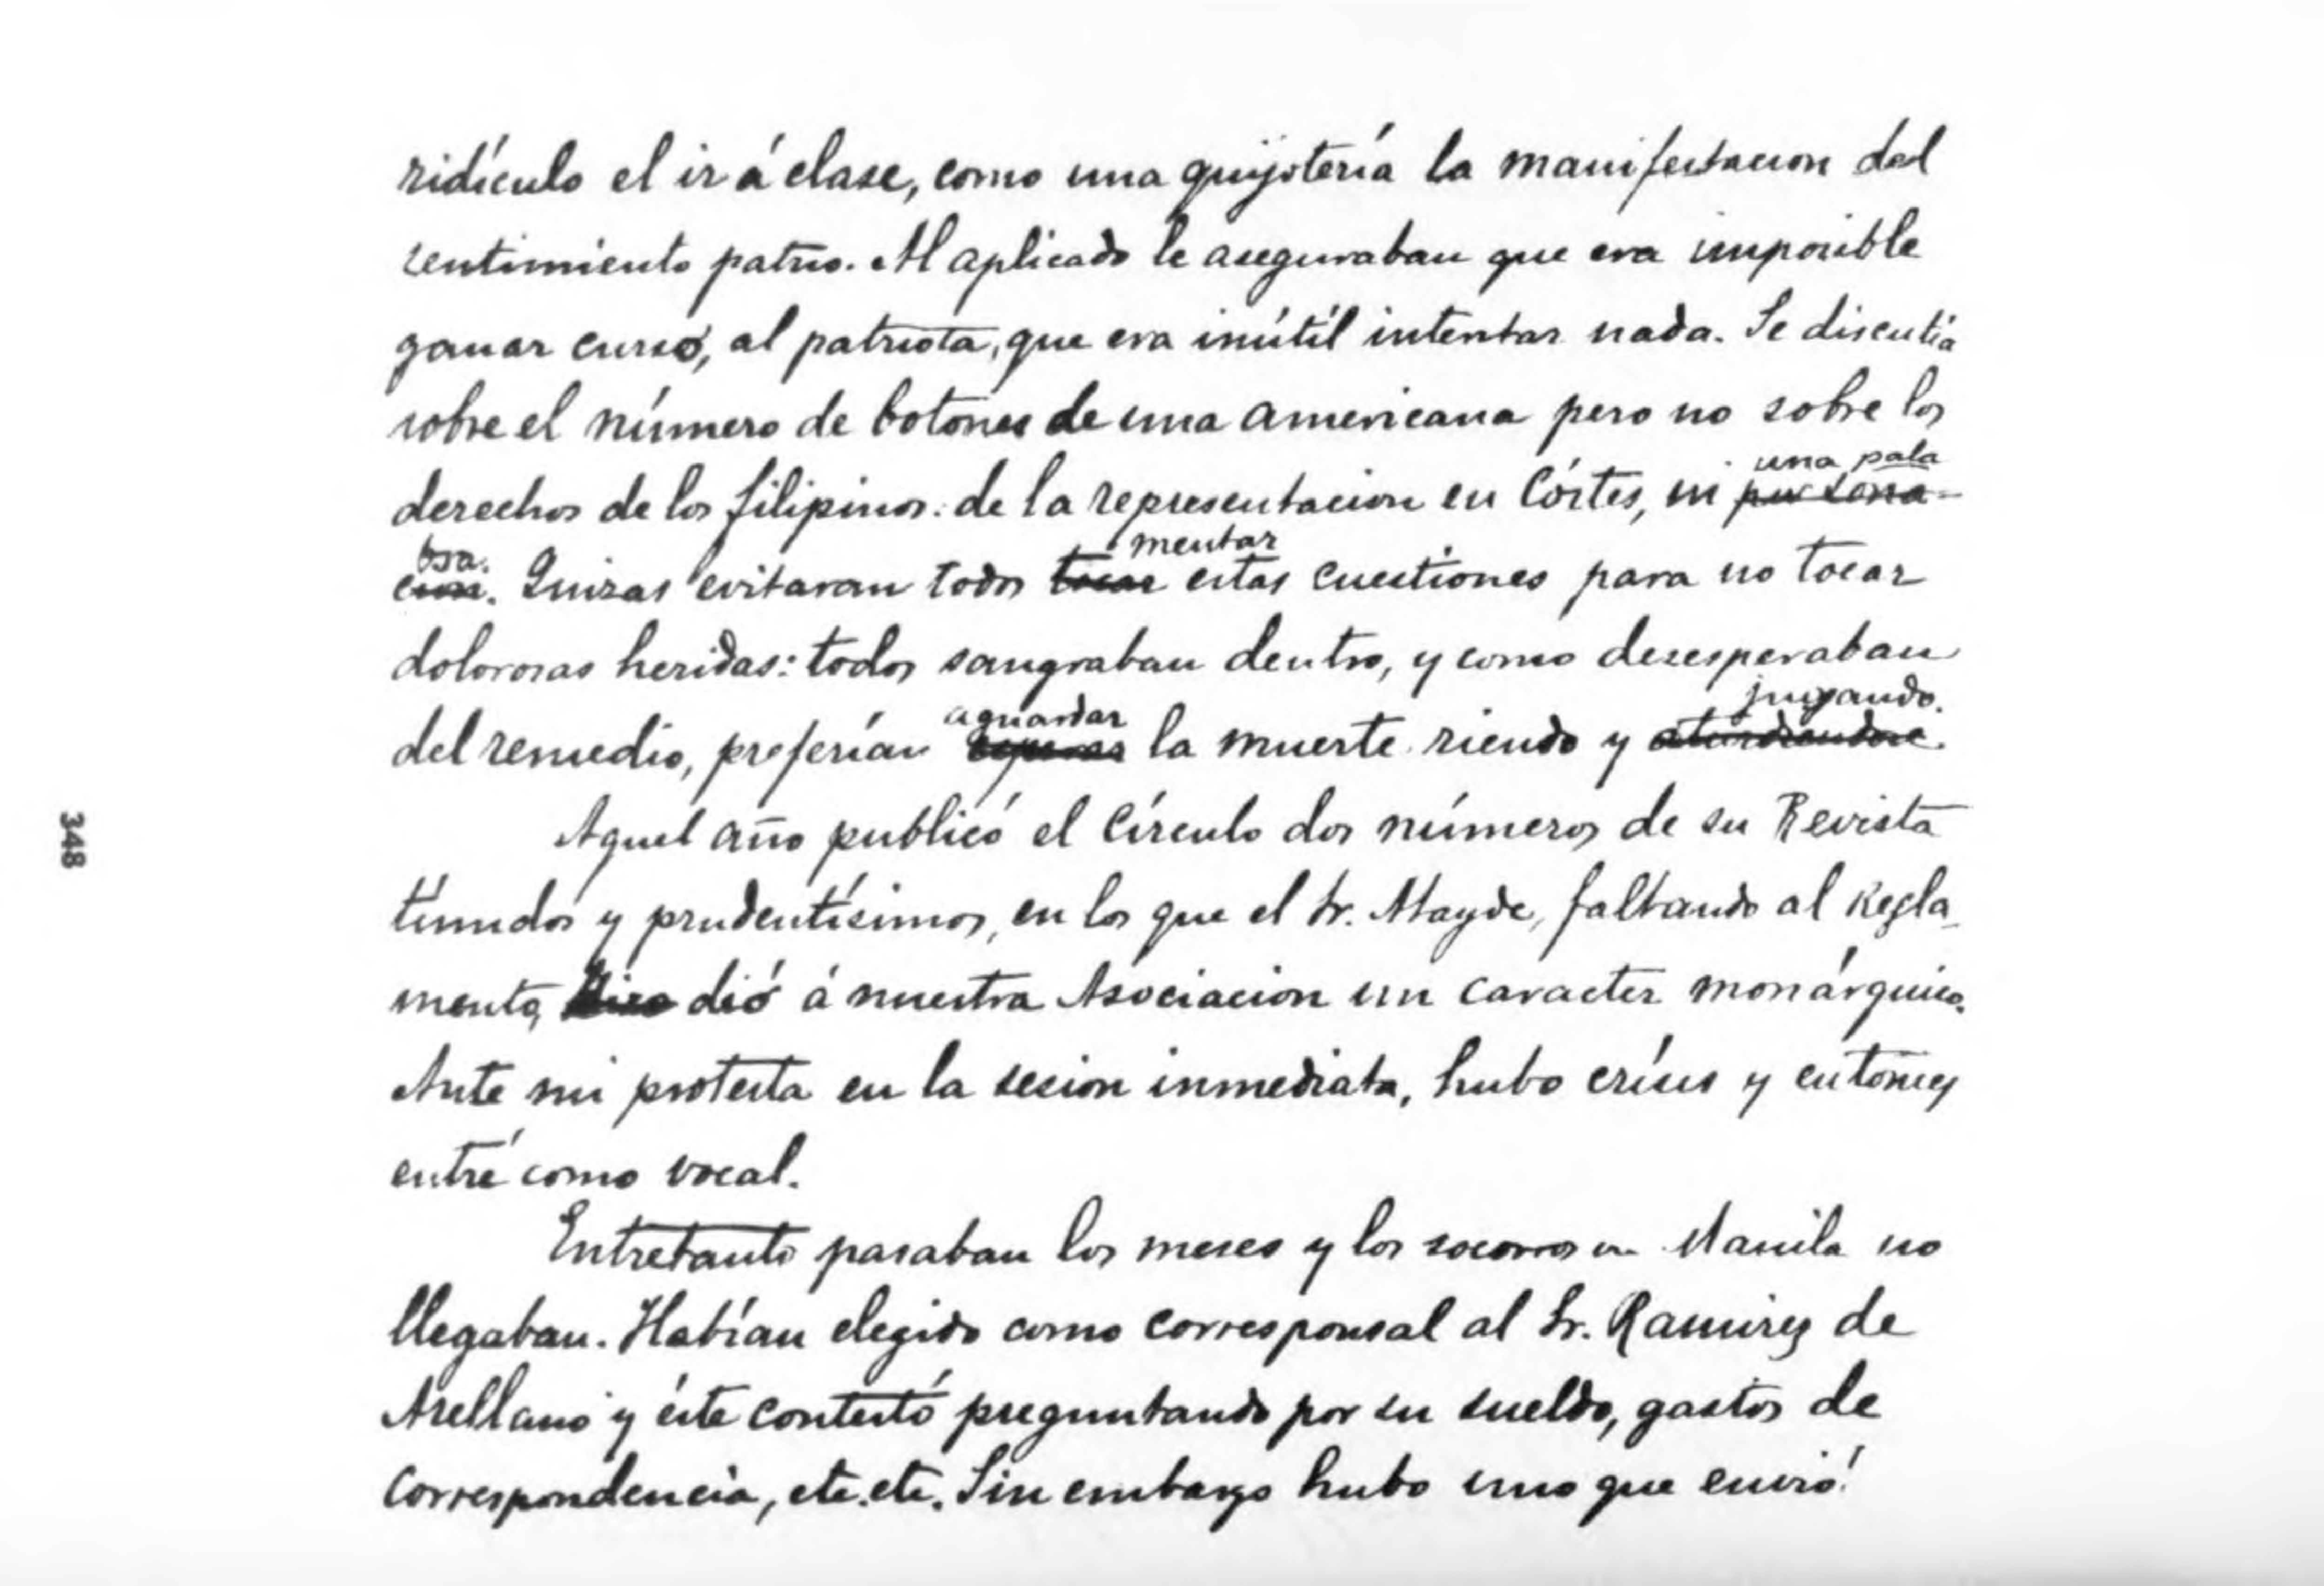 ridículo el ir á clase, como una quijotería la manifestacion del
sentimiento patrio. Al aplicado le aseguraban que era imposible
ganar curso, al patriota, que era inútil intentar nada. Se discutía
sobre el número de botones de una americana pero no sobre los
derechos de los filipinos: de la representacion en Córtes, ni
una pala
bra. Quizas evitaran todos tocar estas cuestiones para no tocar
mentar
dolorosas heridas: todos sangraban dentro, y como desesperaban
del remedio, preferían esperar la muerte riendo y aturdiendose.
aguardar
jugando.
Aquel año publicó el Círculo dos números de su Revista
tímidos y prudentísimos, en los que el Sr. Atayde, faltando al Regla
mento, hizo dió á nuestra Asociacion un caracter monárquico.
Ante mi protesta en la sesion inmediata, hubo crísis y entónces
entré como vocal.
Entretanto pasaban los meses y los socorros Manila no
llegaban. Habían elegido como corresponsal al Sr. Ramirez de
Arellano y éste contestó preguntando por su sueldo, gastos de
correspondencia, etc. etc. Sin embargo hubo uno que envió
348